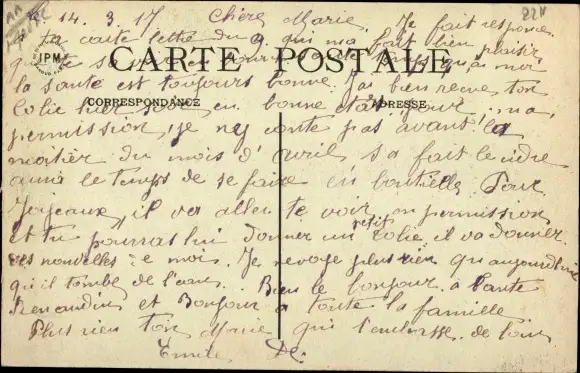 Le 14. 3. 17 Chère Marie, Je fait response
a ta carte lettre du 9 qui ma fait bien plaisir
CARTE POSTALE
IPM
la santé est toujours bonne. j'ai bien reçue ton
CORRESPONDANCE
ADRESSE
colie hier soir en bonne état pour ma
permission, je n'y conte pas avant la
moitier du mois d'avril sa fait le cidre
aura le temps de se faire en bouteilles Pour
Joyeaux, il va aller te voir en permission
et tu pourras lui donner un petit colie il va donner
des nouvelles de moi. Je nevoye plus rien qu'aujourd'hui
qu'il tombe de l'eau. Bien le bonjour a tante
Renaudin et Bonjour a toute la famille
Plus rien ton Marie qui t'embrasse de loin
Emile De.